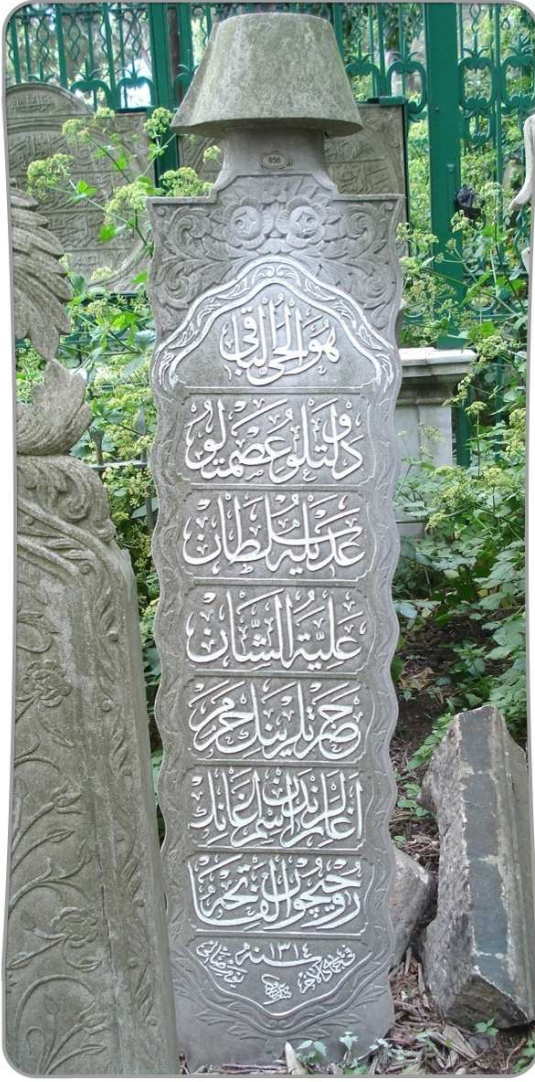 858
هو الحي الباقي
دولتلو عصمتلو
عديله سلطان
علية الشان
حضرتلرينك حرم
اغالرندن السمر اغانك
روحيچون الفاتحه
سنه ١٣١٤